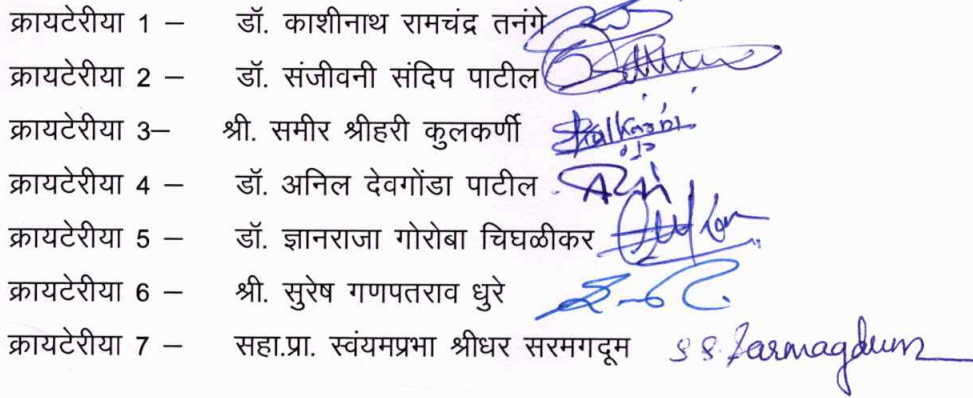 क्रायटेरीया 1 – डॉ. काशीनाथ रामचंद्र तनंगे
क्रायटेरीया 2 – डॉ. संजीवनी संदिप पाटील
क्रायटेरीया 3– श्री. समीर श्रीहरी कुलकर्णी
क्रायटेरीया 4 – डॉ. अनिल देवगोंडा पाटील
क्रायटेरीया 5 – डॉ. ज्ञानराजा गोरोबा चिघळीकर
क्रायटेरीया 6 – श्री. सुरेष गणपतराव धुरे
क्रायटेरीया 7 – सहा.प्रा. स्वंयमप्रभा श्रीधर सरमगदूम S S Sarmagdum